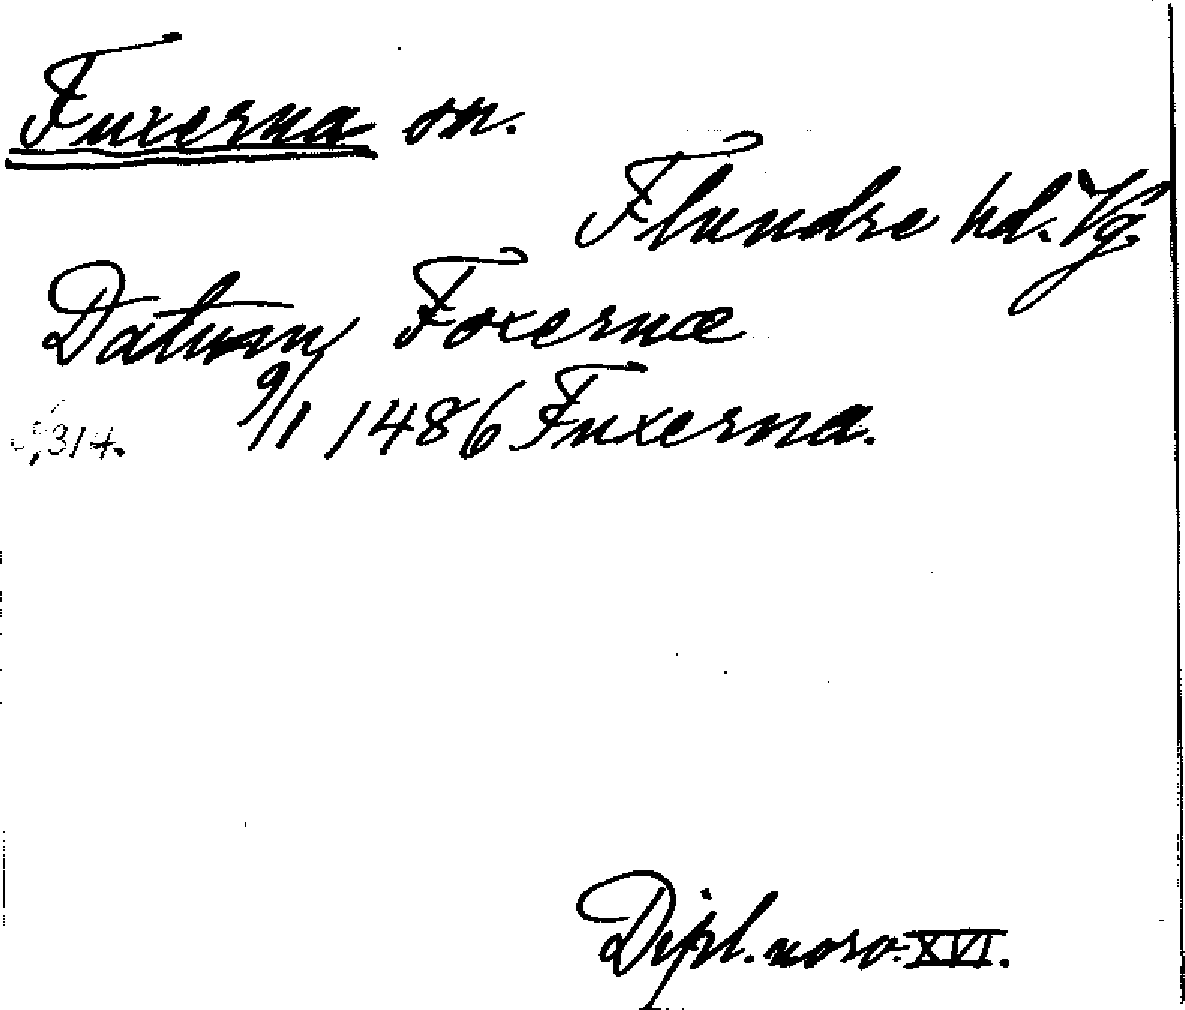 Fuxerna sn.
Flundre hd. Vg.
Datum Foxernæ
9/1 1486 Fuxerna.
314.
Dipl. norv. XVI.